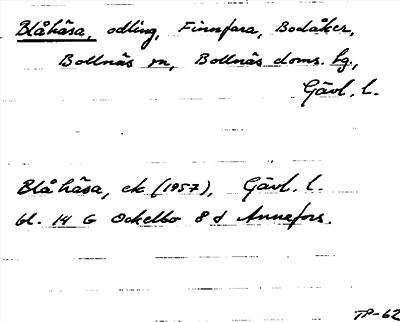 Blåhäsa, odling, Finnfara, Bodåker,
Bollnäs sn, Bollnäs doms. hg.,
Gävl. l.
Blåhäsa, ek (1957), Gävl. l.
bl. 14 G Ockelbo 8 d Annefors.
TP-62